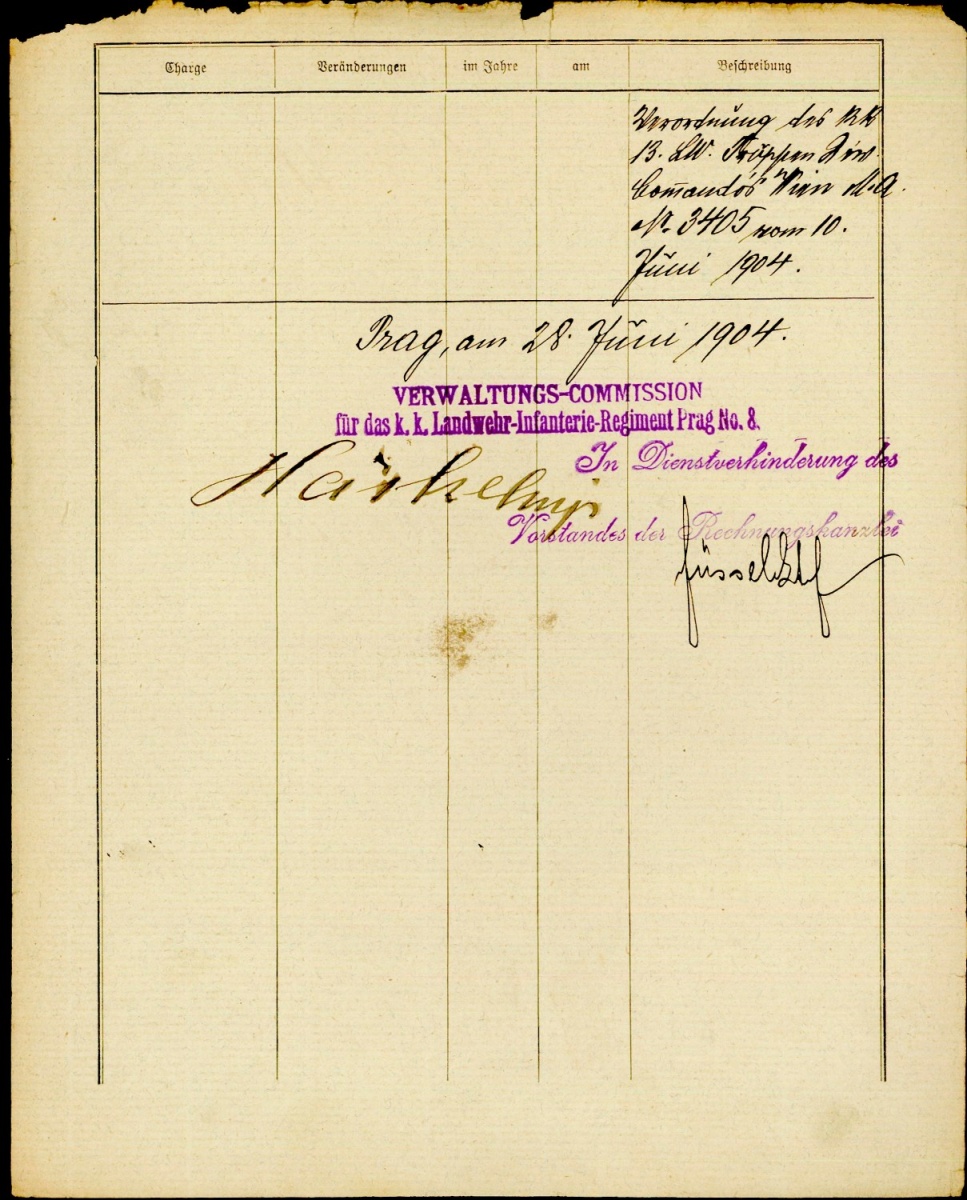 Charge Veränderungen im Jahre am Beschreibung
Verordnung des k k
13. LW. Truppen Div.
Commandos Wien M.A.
Nr. 3405 vom 10.
Juni 1904.
Prag, am 28. Juni 1904.
VERWALTUNGS-COMMISSION
für das k. k. Landwehr-Infanterie-Regiment Prag No. 8.
In Dienstverhinderung des
Vorstandes der Rechnungskanzlei